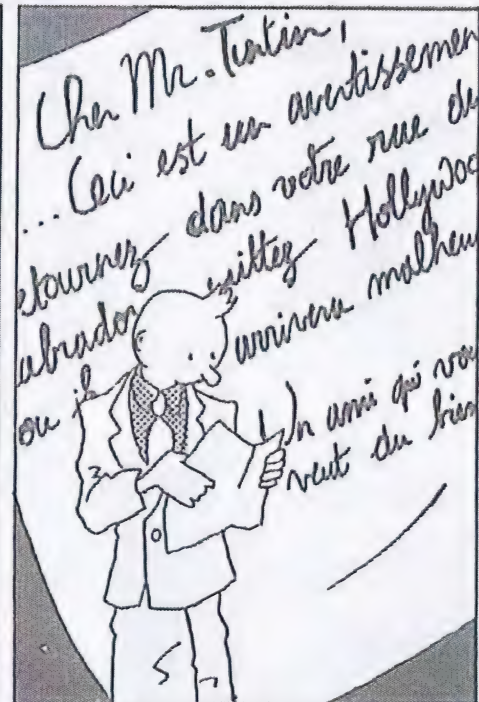 Cher Mr. Tintin,
... Ceci est un avertissemen
etournez dans votre rue du
abrador quittez Hollywoo
ou il arrivera malheu
Un ami qui vou
veut du bien